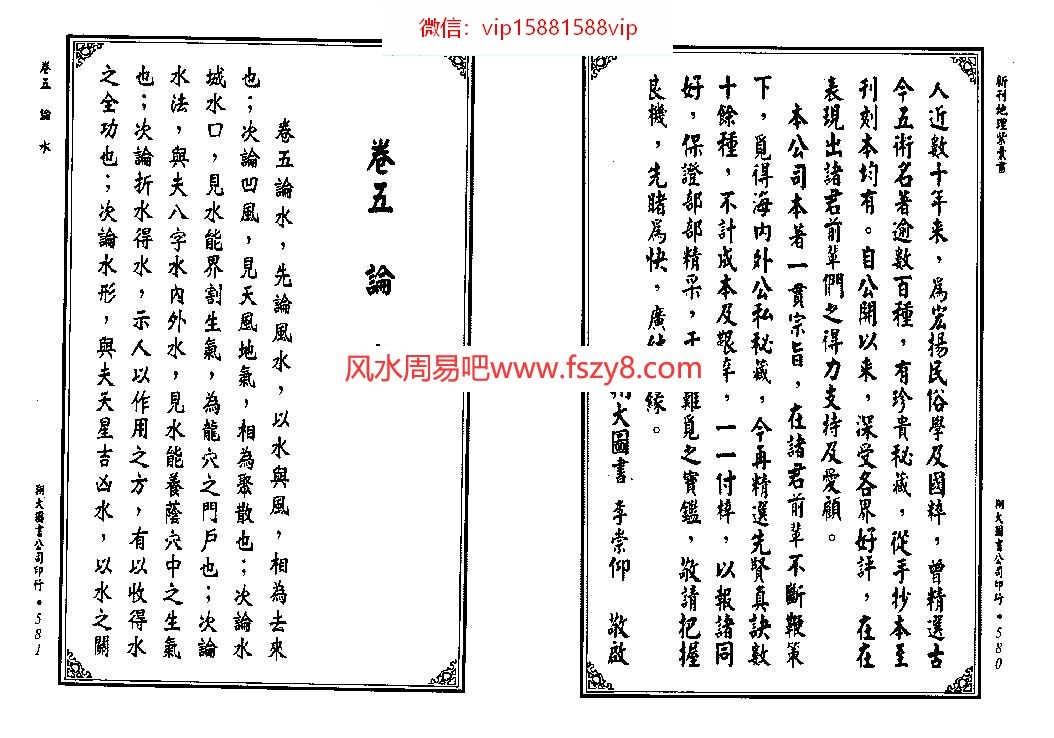 微信：vip15881588vip
新刊地理紫囊書
人近數十年來，爲宏揚民俗學及國粹，曾精選古
今五術名著逾數百種，有珍貴秘藏，從手抄本至
刊刻本均有。自公開以來，深受各界好評，在在
表現出諸君前輩們之得力支持及愛顧。
本公司本著一貫宗旨，在諸君前輩不斷鞭策
下，覓得海內外公私秘藏，今再精選先賢真訣數
十餘種，不計成本及艱辛，一一付梓，以報諸同
好，保證部部精采，難覓之寶鑑，敬請把握
良機，先睹爲快，廣結緣。
翔大圖書 李崇仰 敬啟
翔大圖書公司印行•580
風水周易吧www.fszy8.com
卷五 論
卷五論水，先論風水，以水與風，相為去來
也；次論凹風，見天風地氣，相為聚散也；次論水
城水口，見水能界割生氣，為龍穴之門戶也；次論
水法，與夫八字水內外水，見水能養蔭穴中之生氣
也；次論折水得水，示人以作用之方，有以收得水
之全功也；次論水形，與夫天星吉凶水，以水之關
卷五 論水
翔大圖書公司印行•581